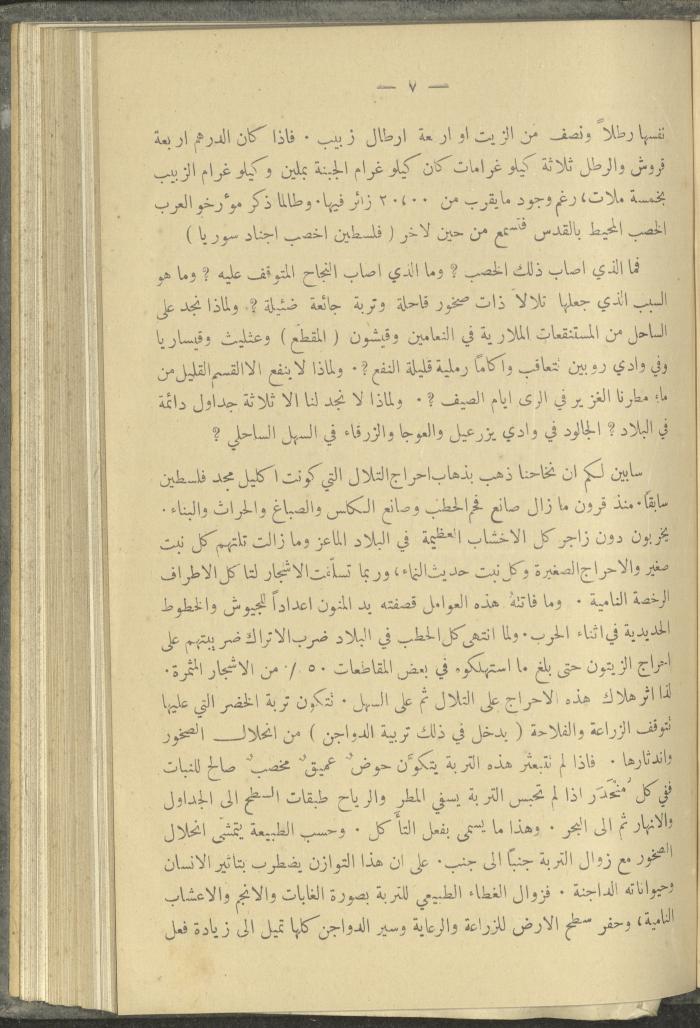 — ٧ —
نفسها رطلاً ونصف من الزيت او اربعة ارطال زبيب . فاذا كان الدرهم اربعة
قروش والرطل ثلاثة كيلو غرامات كان كيلو غرام الجبنة بملين وكيلو غرام الزبيب
بخمسة ملات، رغم وجود مايقرب من ٢٠،٠٠ زائر فيها . وطالما ذكر مؤرخو العرب
الخصب المحيط بالقدس فتسمع من حين لاخر ( فلسطين اخصب اجناد سوريا )
فما الذي اصاب ذلك الخصب ? وما الذي اصاب النجاح المتوقف عليه ? وما هو
السبب الذي جعلها تلالاً ذات صخور قاحلة وتربة جائعة ضئيلة ? ولماذا نجد على
الساحل من المستنقعات الملارية في النعامين وقيشون ( المقطع ) وعثليث وقيساريا
وفي وادي روبين تتعاقب واكامًا رملية قليلة النفع ? . ولماذا لا ينفع الا القسم القليل من
ماء مطرنا الغزير في الري ايام الصيف ? . ولماذا لا نجد لنا الا ثلاثة جداول دائمة
في البلاد ? الجالود في وادي يزرعيل والعوجا والزرقاء في السهل الساحلي ?
سابين لكم ان نجاحنا ذهب بذهاب احراج التلال التي كونت اكليل مجد فلسطين
سابقًا . منذ قرون ما زال صانع فحم الحطب وصانع الكلس والصباغ والحراث والبناء .
يخربون دون زاجر كل الاخشاب العظيمة في البلاد الماعز وما زالت تلتهم كل نبت
صغير والاحراج الصغيرة وكل نبت حديث النماء، وربما تسلّقت الاشجار لتاكل الاطراف
الرخصة النامية . وما فاتته هذه العوامل قصفته يد المنون اعداداً للجيوش والخطوط
الحديدية في اثناء الحرب . ولما انتهى كل الحطب في البلاد ضرب الاتراك ضريبتهم على
احراج الزيتون حتى بلغ ما استهلكوه في بعض المقاطعات ٥٠ ٪ من الاشجار المثمرة .
لذا اثر هلاك هذه الاحراج على التلال ثم على السهل . تتكون تربة الخضر التي عليها
تتوقف الزراعة والفلاحة ( يدخل في ذلك تربية الدواجن ) من انحلال الصخور
واندثارها . فاذا لم تتبعثر هذه التربة يتكوّن حوض عميق مخصب صالح للنبات
ففي كل مُنحَدَر اذا لم تحبس التربة يسفي المطر والرياح طبقات السطح الى الجداول
والانهار ثم الى البحر . وهذا ما يسمى بفعل التأكل . وحسب الطبيعة يتمشى انحلال
الصخور مع زوال التربة جنبًا الى جنب . على ان هذا التوازن يضطرب بتاثير الانسان
وحيواناته الداجنة . فزوال الغطاء الطبيعي للتربة بصورة الغابات والانجم والاعشاب
النامية، وحفر سطح الارض للزراعة والرعاية وسير الدواجن كلها تميل الى زيادة فعل